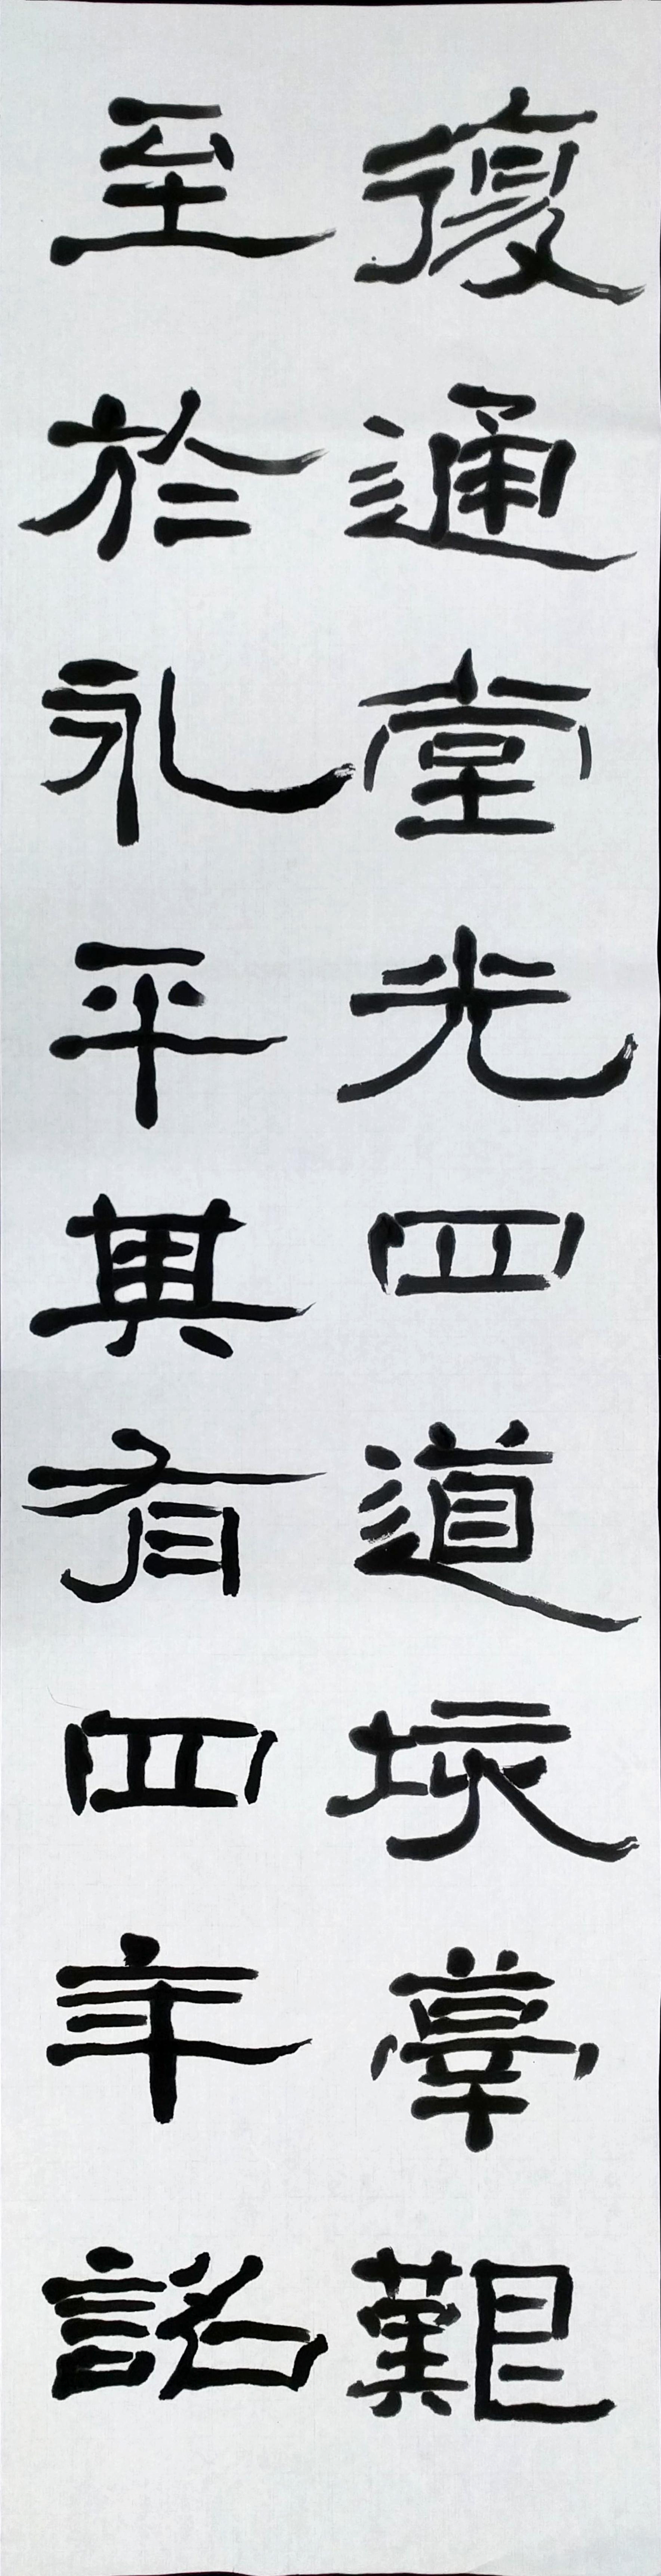 復通堂光四道垓鬲艱
至於永平其有四年詔